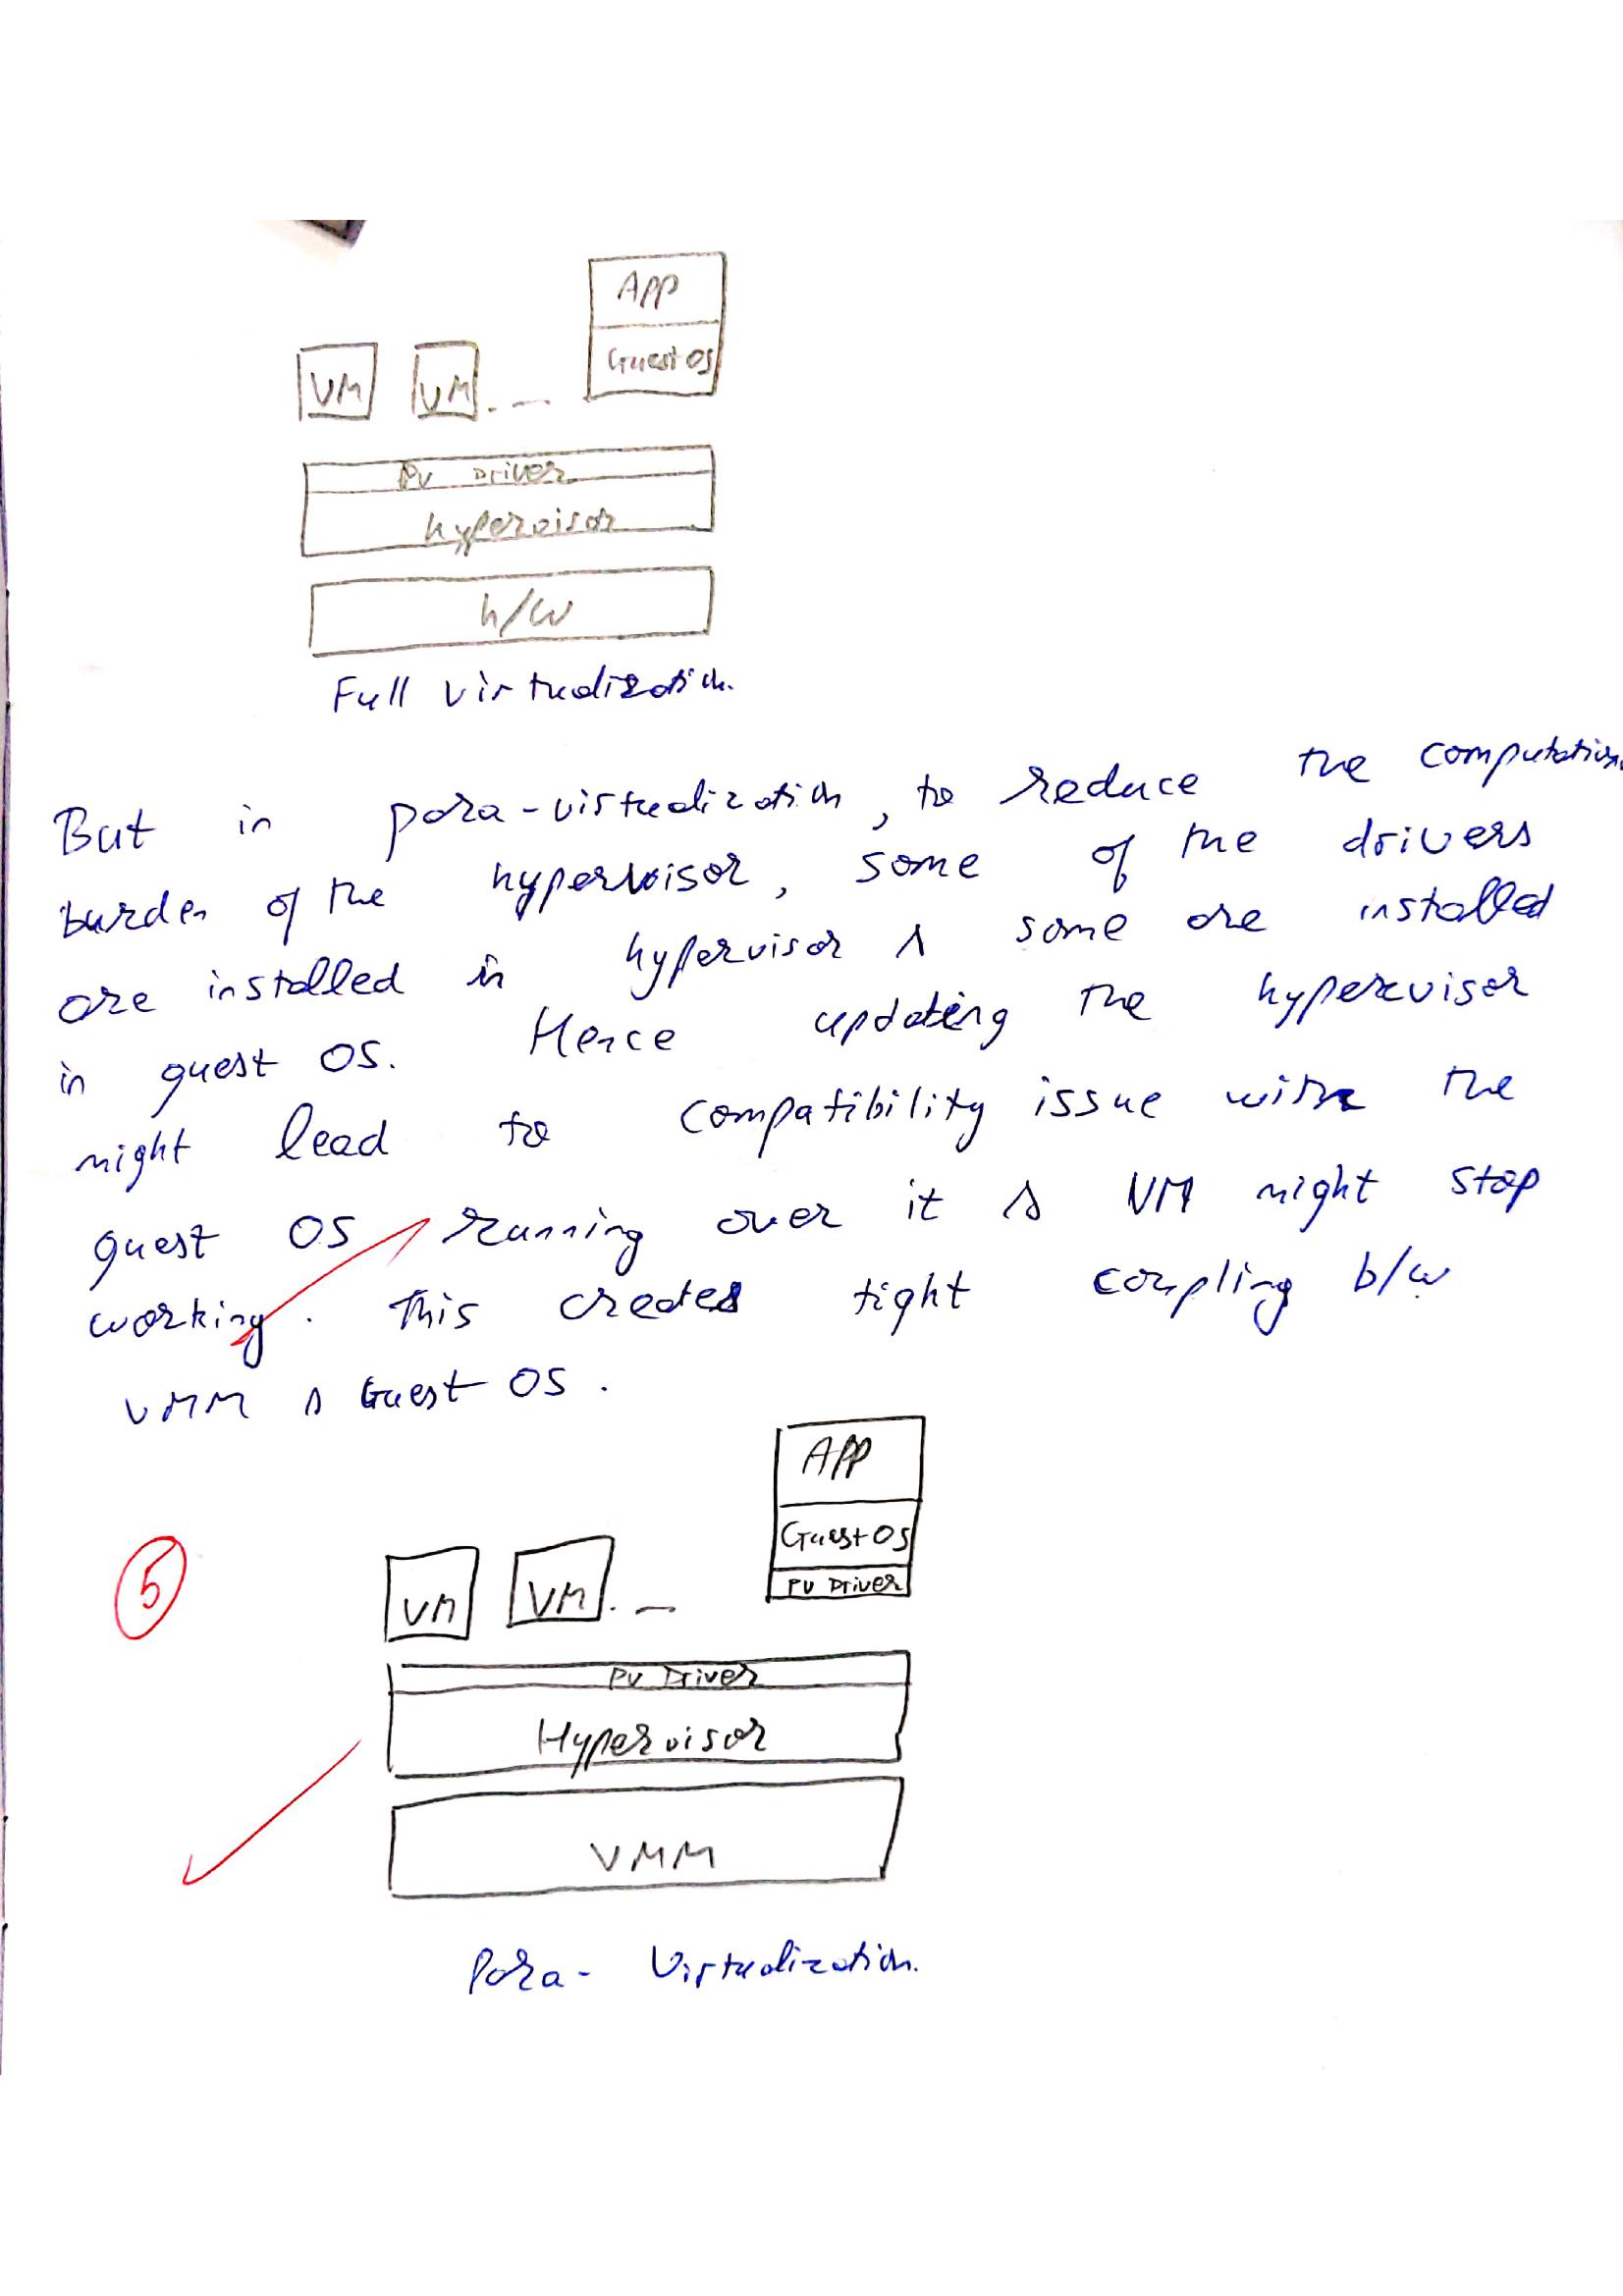 APP
Guest OS
VM VM
PV Driver
hypervisor
h/w
Full virtualization.
But in para-virtualization, to reduce the computation
burden of the hypervisor, some of the drivers
are installed in hypervisor & some are installed
in guest OS. Hence updating the hypervisor
might lead to compatibility issue with the
guest OS running over it & VM might stop
working. This creates tight coupling b/w
VMM & Guest OS.
APP
Guest OS
PV Driver
5
VM VM
PV Driver
Hypervisor
VMM
Para- Virtualization.